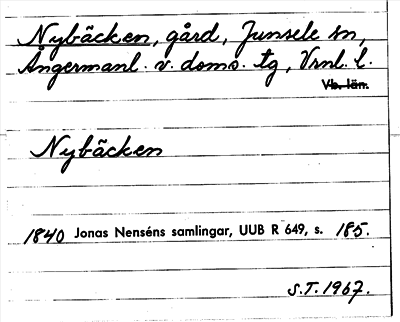 Nybäcken, gård, Junsele sn,
Ångermanl. v. doms. tg, Vrnl. l.
Vb. län.
Nybäcken
1840 Jonas Nenséns samlingar, UUB R 649, s. 185.
S.T. 1967.